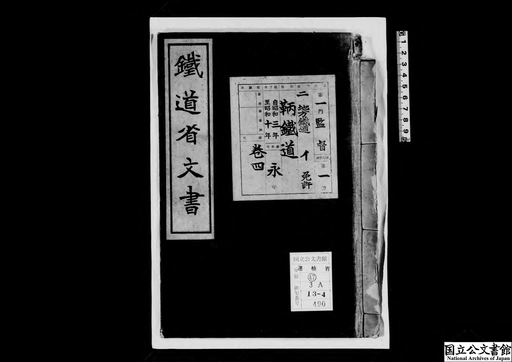 鐵道省文書
第一門
監督
第一
二、地方鐵道
イ、免許
鞆鐵道
自昭和三年
至昭和十年
永年
巻四
国立公文書館
運輸省
3A
13-4
490
1 2 3 4 5 6 7 8 9
国立公文書館
National Archives of Japan